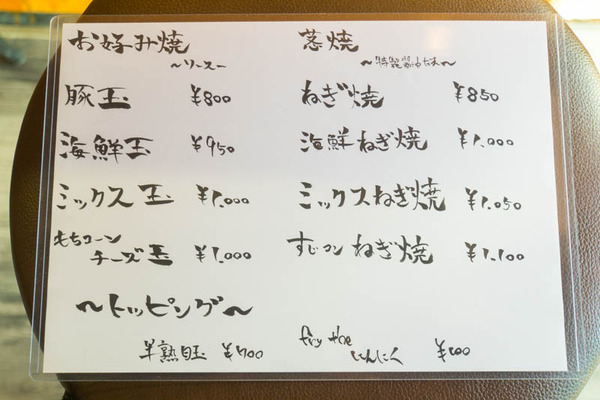 お好み焼
〜ソース〜
豚玉 ¥800
海鮮玉 ¥950
ミックス玉 ¥1.000
もちコーン
チーズ玉 ¥1.000
葱焼
〜特製醤油だれ〜
ねぎ焼 ¥850
海鮮ねぎ焼 ¥1.000
ミックスねぎ焼 ¥1.050
すじコンねぎ焼 ¥1.100
〜トッピング〜
半熟目玉
にんにく ¥100